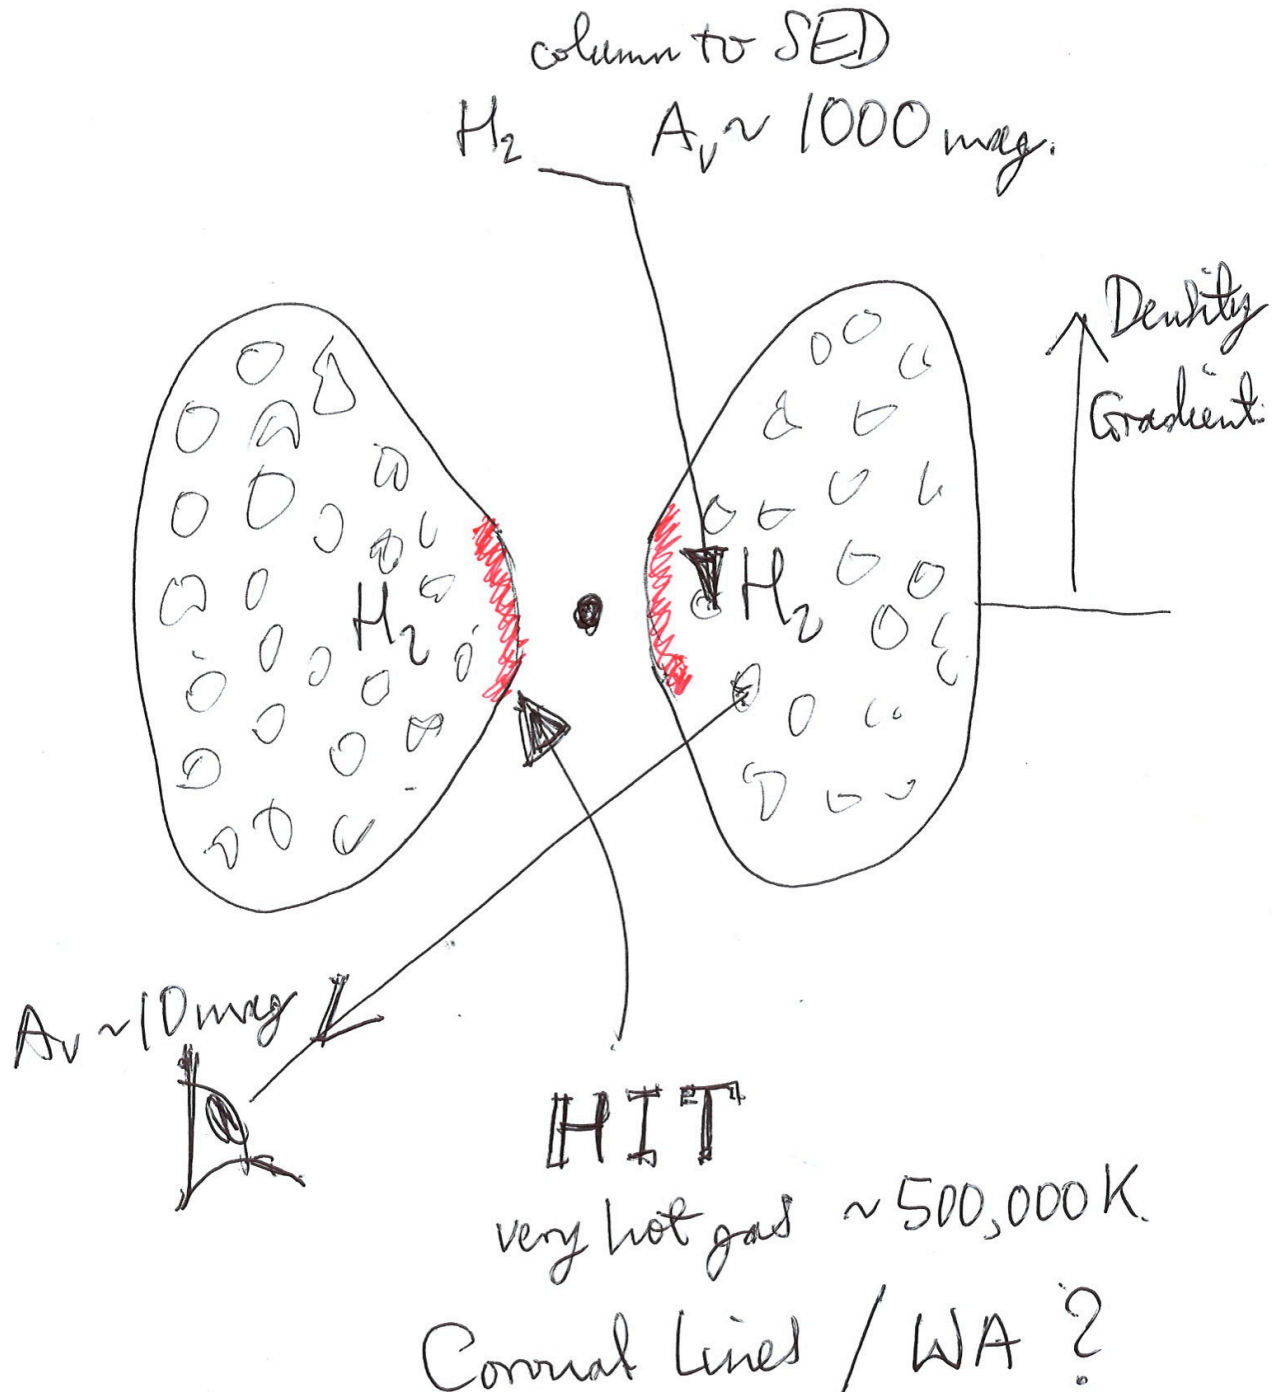 column to SED
H₂ Aᵥ ~ 1000 mag.
Density
Gradient
H₂
H₂
Aᵥ ~ 10 mag
HIT
very hot gas ~ 500,000 K.
Coronal Lines / WA ?